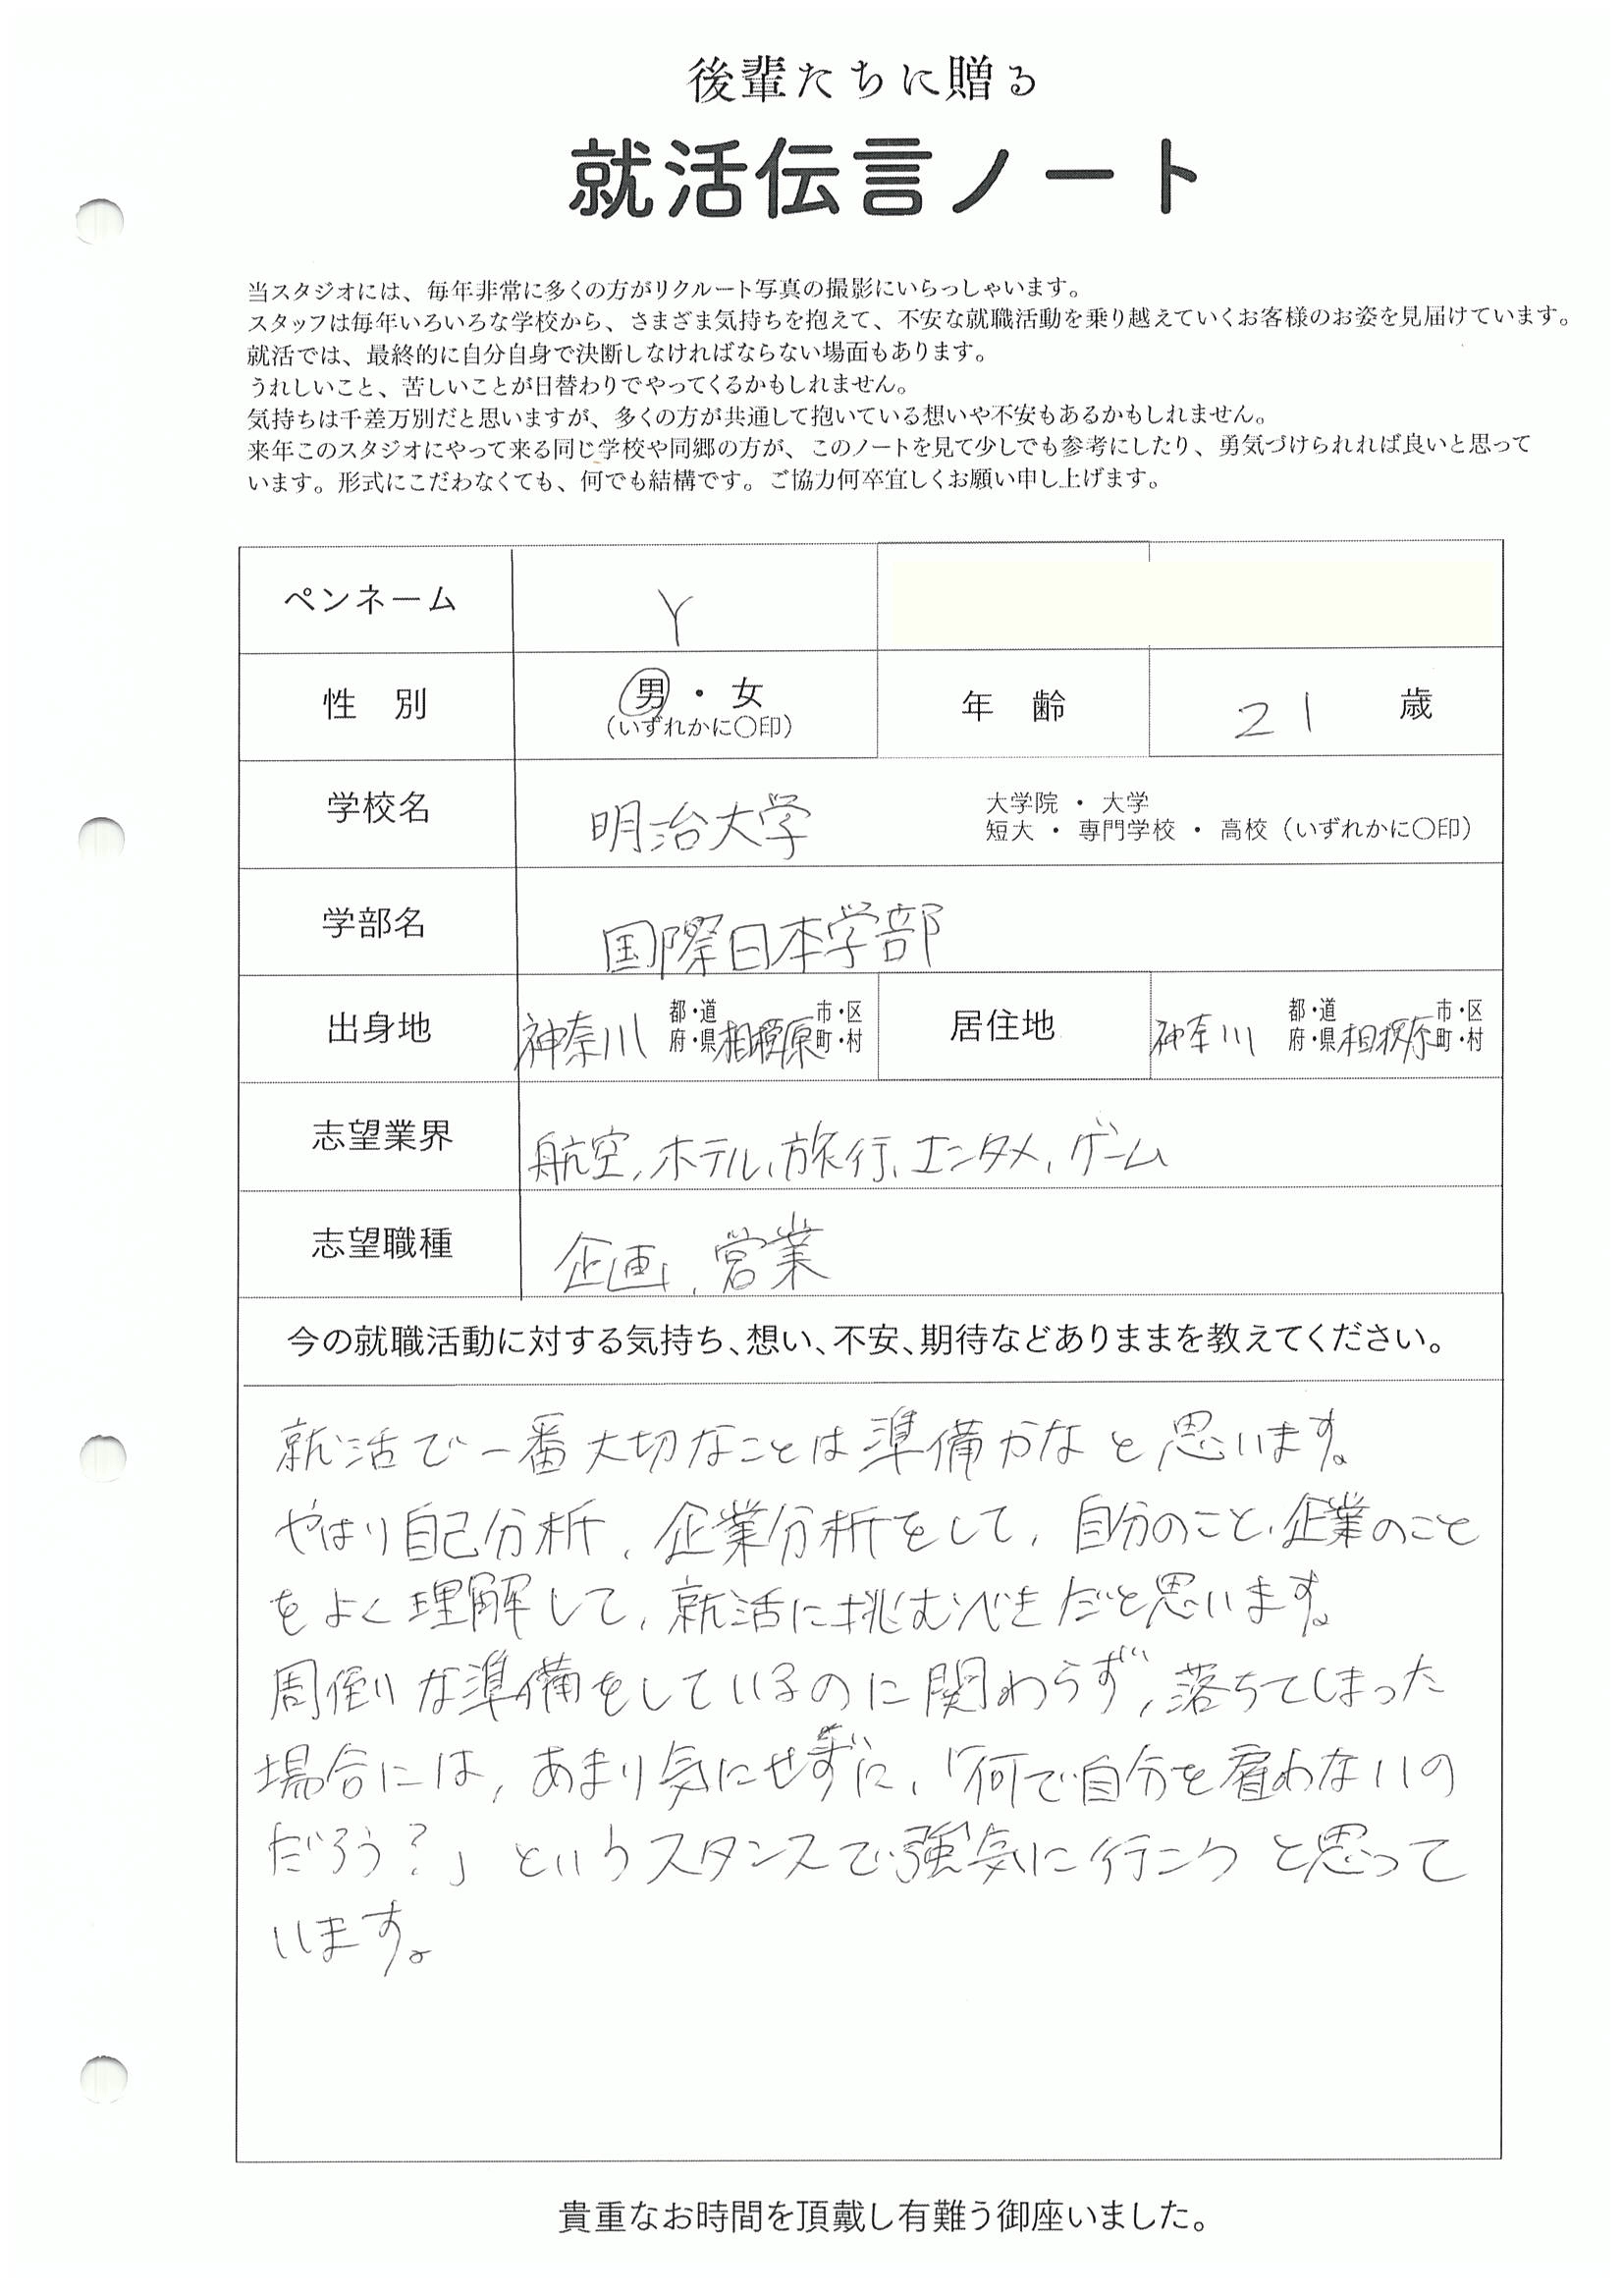 後輩たちに贈る
就活伝言ノート
当スタジオには、毎年非常に多くの方がリクルート写真の撮影にいらっしゃいます。
スタッフは毎年いろいろな学校から、さまざま気持ちを抱えて、不安な就職活動を乗り越えていくお客様のお姿を見届けています。
就活では、最終的に自分自身で決断しなければならない場面もあります。
うれしいこと、苦しいことが日替わりでやってくるかもしれません。
気持ちは千差万別だと思いますが、多くの方が共通して抱いている想いや不安もあるかもしれません。
来年このスタジオにやって来る同じ学校や同郷の方が、このノートを見て少しでも参考にしたり、勇気づけられれば良いと思って
います。形式にこだわなくても、何でも結構です。ご協力何卒宜しくお願い申し上げます。
ペンネーム Y
性 別 男 ・ 女 (いずれかに〇印) 年 齢 21 歳
学校名 明治大学 大学院 ・ 大学
短大 ・ 専門学校 ・ 高校(いずれかに〇印)
学部名 国際日本学部
出身地 神奈川 都・道府・県 相模原 市・区町・村 居住地 神奈川 都・道府・県 相模原 市・区町・村
志望業界 航空、ホテル、旅行、エンタメ、ゲーム
志望職種 企画、営業
今の就職活動に対する気持ち、想い、不安、期待などありままを教えてください。
就活で一番大切なことは準備かなと思います。
やはり自己分析、企業分析をして、自分のこと、企業のこと
をよく理解して、就活に挑むべきだと思います。
周到な準備をしているのに関わらず、落ちてしまった
場合には、あまり気にせずに、「何で自分を雇わないの
だろう?」というスタンスで強気に行こうと思って
います。
貴重なお時間を頂戴し有難う御座いました。